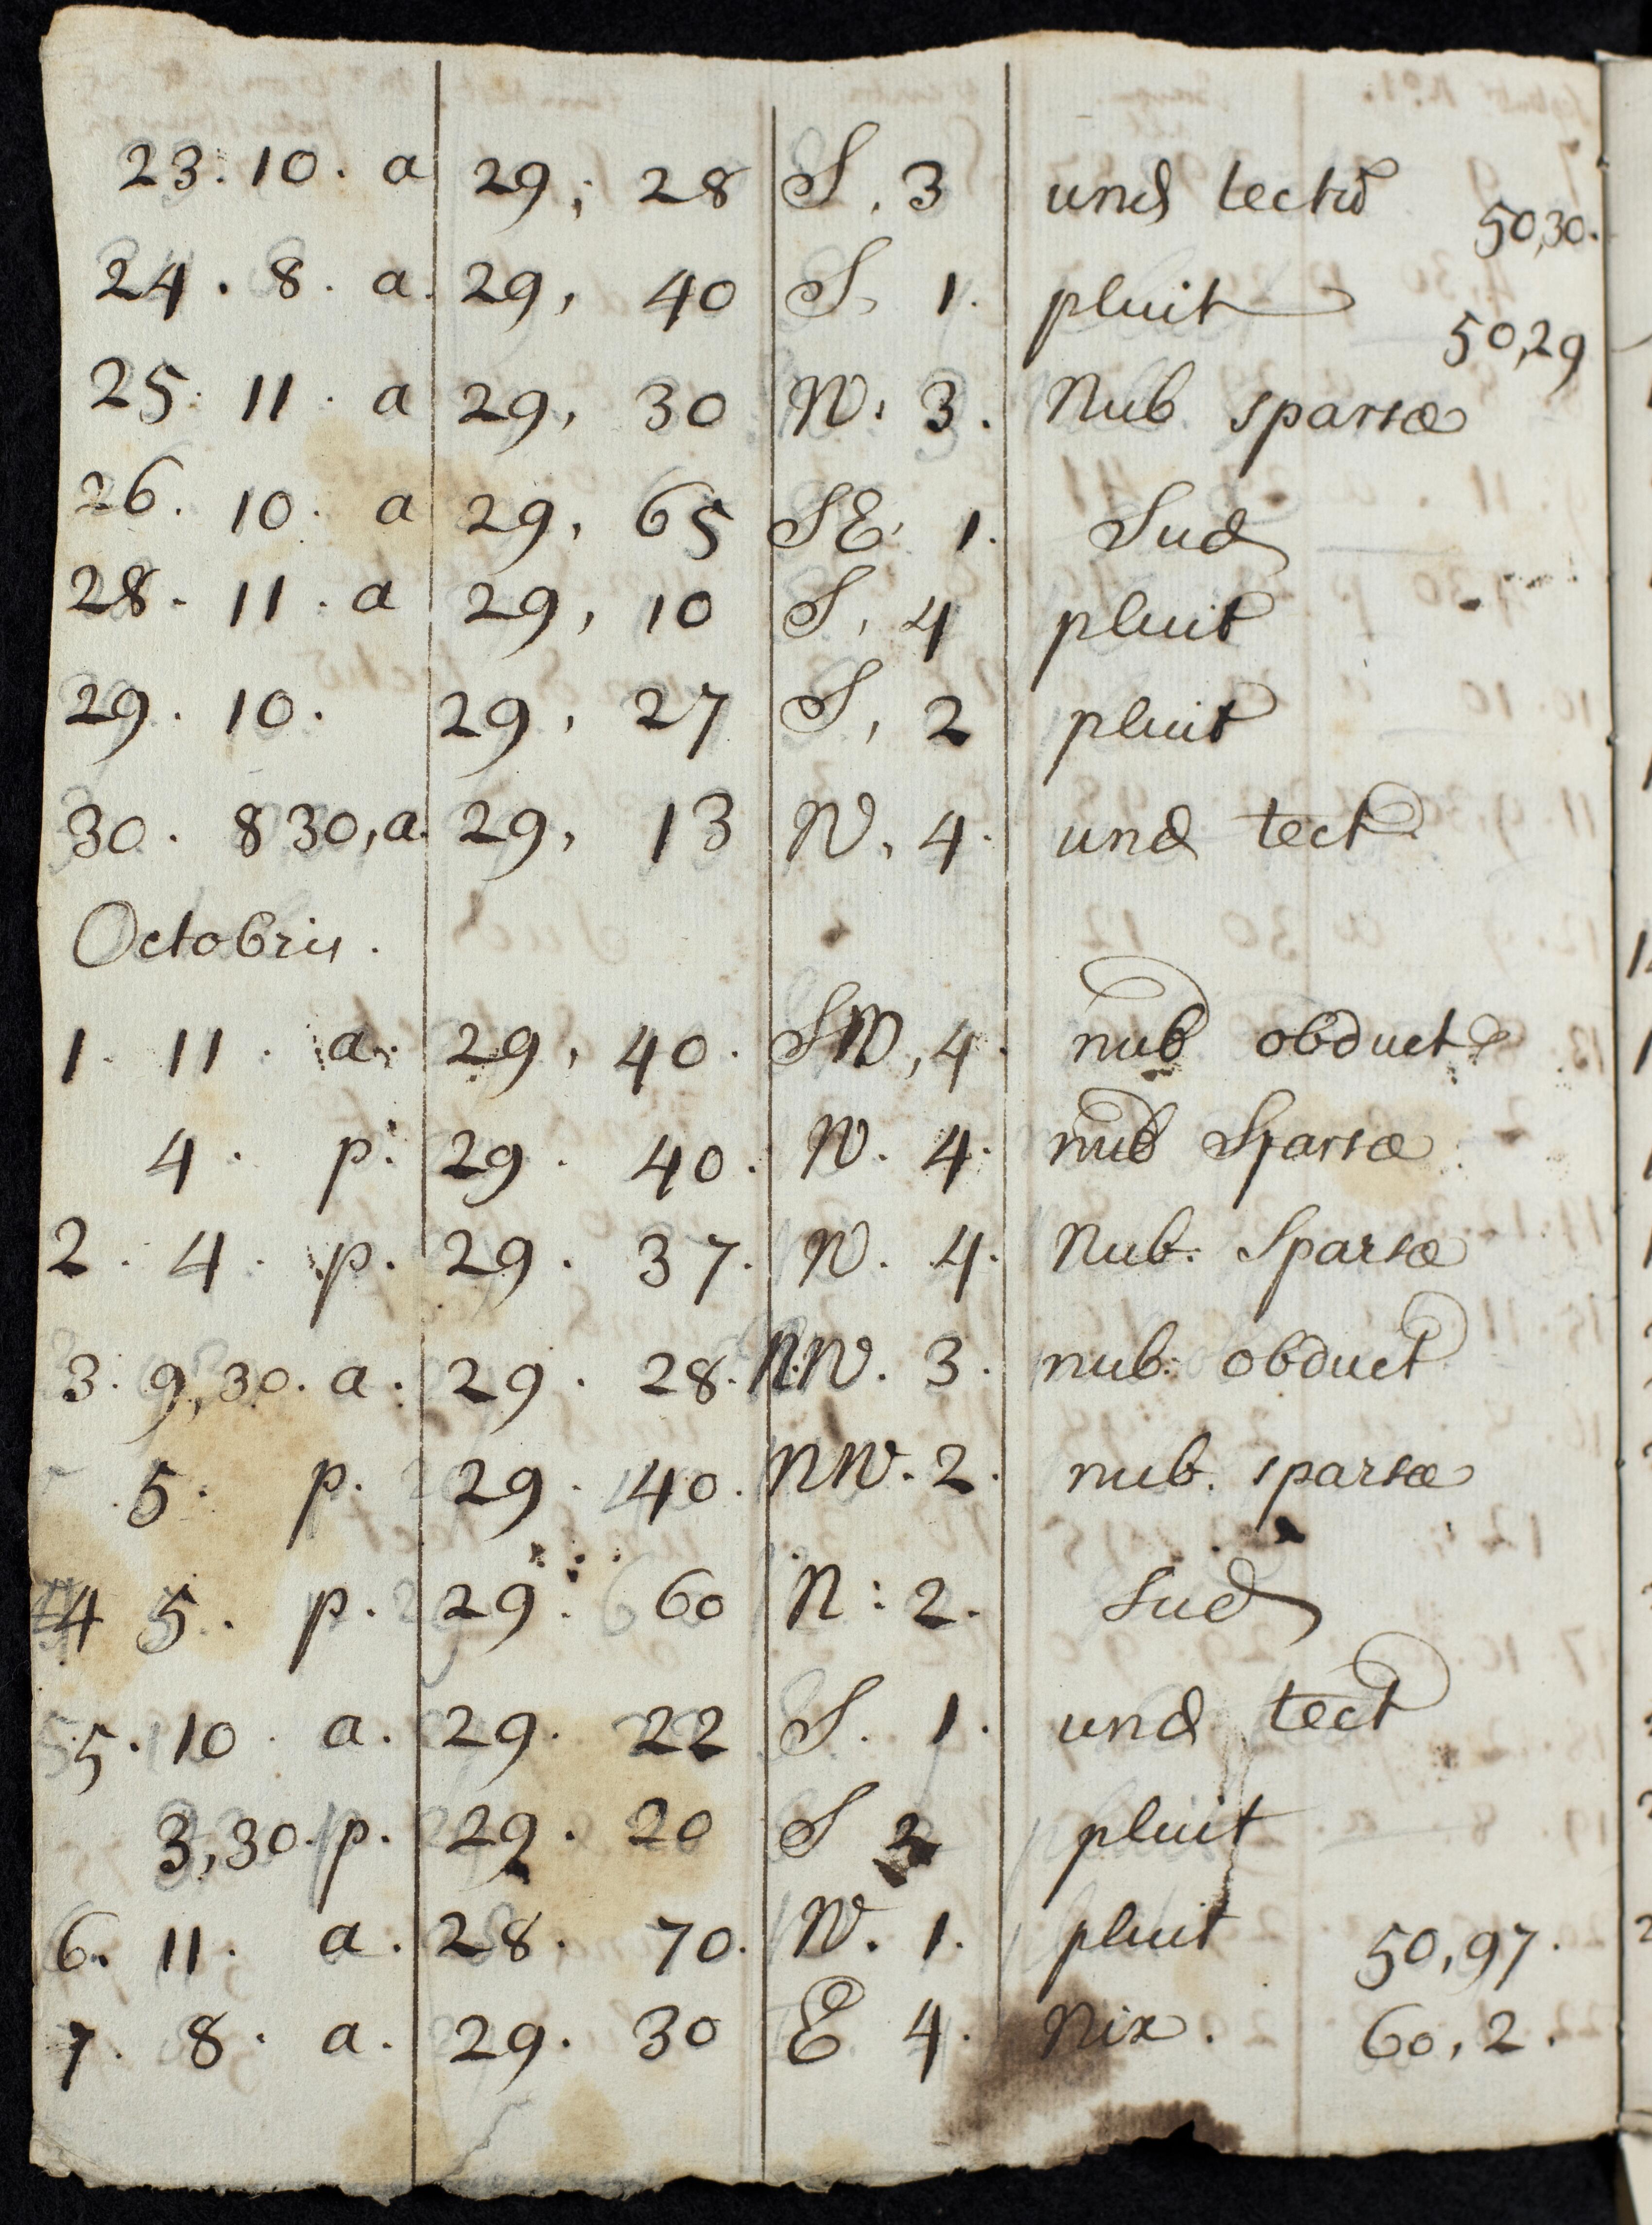 23. 10. a 29, 28 S, 3 und tectũ 50,30.
24. 8. a. 29, 40 S, 1. pluit 50,29
25. 11. a 29, 30 W. 3. Nub sparsæ
26. 10. a 29, 65 SE. 1. Sud
28. 11. a 29, 10 S, 4 pluit
29. 10. 29, 27 S, 2 pluit
30. 8 30, a. 29, 13 W, 4. und tect
Octobris.
1. 11. a. 29, 40. SW, 4. nub obduct
4. p. 29. 40. W. 4. nub Sparsæ
2. 4. p. 29. 37. W. 4. Nub. Sparsæ
3. 9,30. a. 29. 28. NW. 3. nub. obduct
5. p. 29. 40. NW. 2. nub. sparsæ
4 5. p. 29. 60 N: 2. Sud
5. 10. a. 29. 22 S. 1. und tect
3,30. p. 29. 20 S 2 pluit
6. 11. a. 28. 70. W. 1. pluit 50,97.
7. 8. a. 29. 30 E 4. Nix. 60,2.